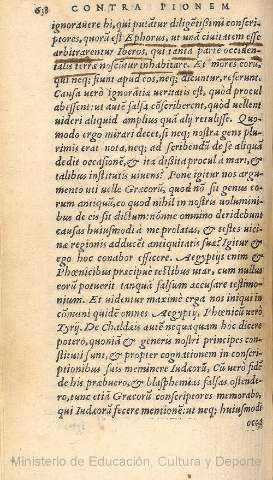 638 CONTRA PIONEM
ignorauere hi, qui putãtur diligẽtissimi conscri-
ptores, quorũ est Ephorus, ut unã ciuitatem esse
arbitrarentur Iberos, qui tanta parte occiden-
talis terræ noscũtur inhabitare. Et mores eorũ
qui neq; fiunt apud eos, neq; dicuntur, referunt.
Causa uerò ignorãtiæ ueritatis est, quòd procul
abessent: ut autẽ falsa cõscriberent, quòd uellent
uideri aliquid amplius quã alij retulisse. Quo-
modo ergo mirari decet, si neq; nostra gens plu-
rimis erat nota, neq; ad scribendũ de se aliquã
dedit occasionẽ, & ita disita procul à mari, &
talibus institutis uiuens? Pone igitur nos argu-
mento uti uelle Græcorũ, quod nõ sit genus eo-
rum antiquũ, eo quod nihil in nostris uolumini-
bus de eis sit dictum: nõnne omnino deridebunt
causas huiusmodi à me prolatas, & testes uici-
næ regionis adducẽt antiquitatis suæ? Igitur &
ego hoc conabor efficere. Aegyptijs enim &
Phœnicibus præcipuè testibus utar, cum nullus
eorũ potuerit tanquã falsum accusare testimo-
nium. Et uidentur maximè erga nos iniqui in
cõmuni quidẽ omnes Aegyptij, Phœnicũ uerò
Tyrij. De Chaldæis autẽ nequaquam hoc dicere
potero, quoniã & generis nostri principes con-
stituti sunt, & propter cognationem in conscri-
ptionibus suis meminere Iudæorũ. Cũ uerò fidẽ
de his præbuero, & blasphemias falsas ostende-
ro, tunc etiã Græcorũ conscriptores memorabo,
qui Iudæorũ fecere mentionẽ: ut neq; huiusmodi
occa
Ministerio de Educación, Cultura y Deporte